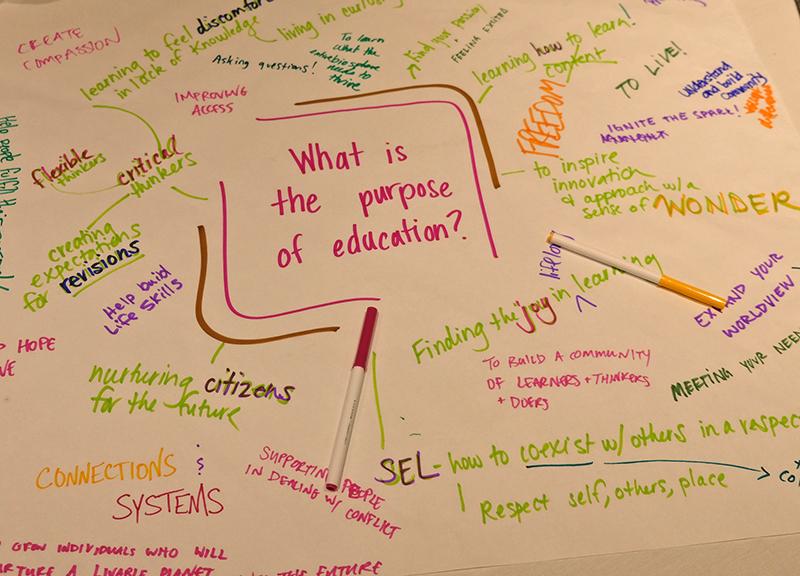 CREATE
COMPASSION
learning to feel discomfort
in lack of knowledge
living in
Asking questions!
To learn
what the
needs to
thrive
find your passion/
FEELING EXCITED
learning how to learn!
content
TO LIVE!
Understand
and build
Community
FREEDOM
IGNITE THE SPARK!
IMPROVING
ACCESS
flexible
thinkers
critical
thinkers
creating
expectations
for revisions
Help build
Life Skills
What is
the purpose
of education?
to inspire
innovation
& approach w/a
sense of WONDER
lifelong
Finding the joy in ^ learning
EXPAND YOUR
WORLDVIEW
MEETING YOUR
TO BUILD A COMMUNITY
OF LEARNERS + THINKERS
+ DOERS
HOPE
nurturing citizens
for the future
CONNECTIONS &
SYSTEMS
SUPPORTING PEOPLE
IN DEALING W/ CONFLICT
SEL - how to coexist w/ others in a respec
Respect self, others, place
GROW INDIVIDUALS WHO WILL
A LIVABLE PLANET
THE FUTURE